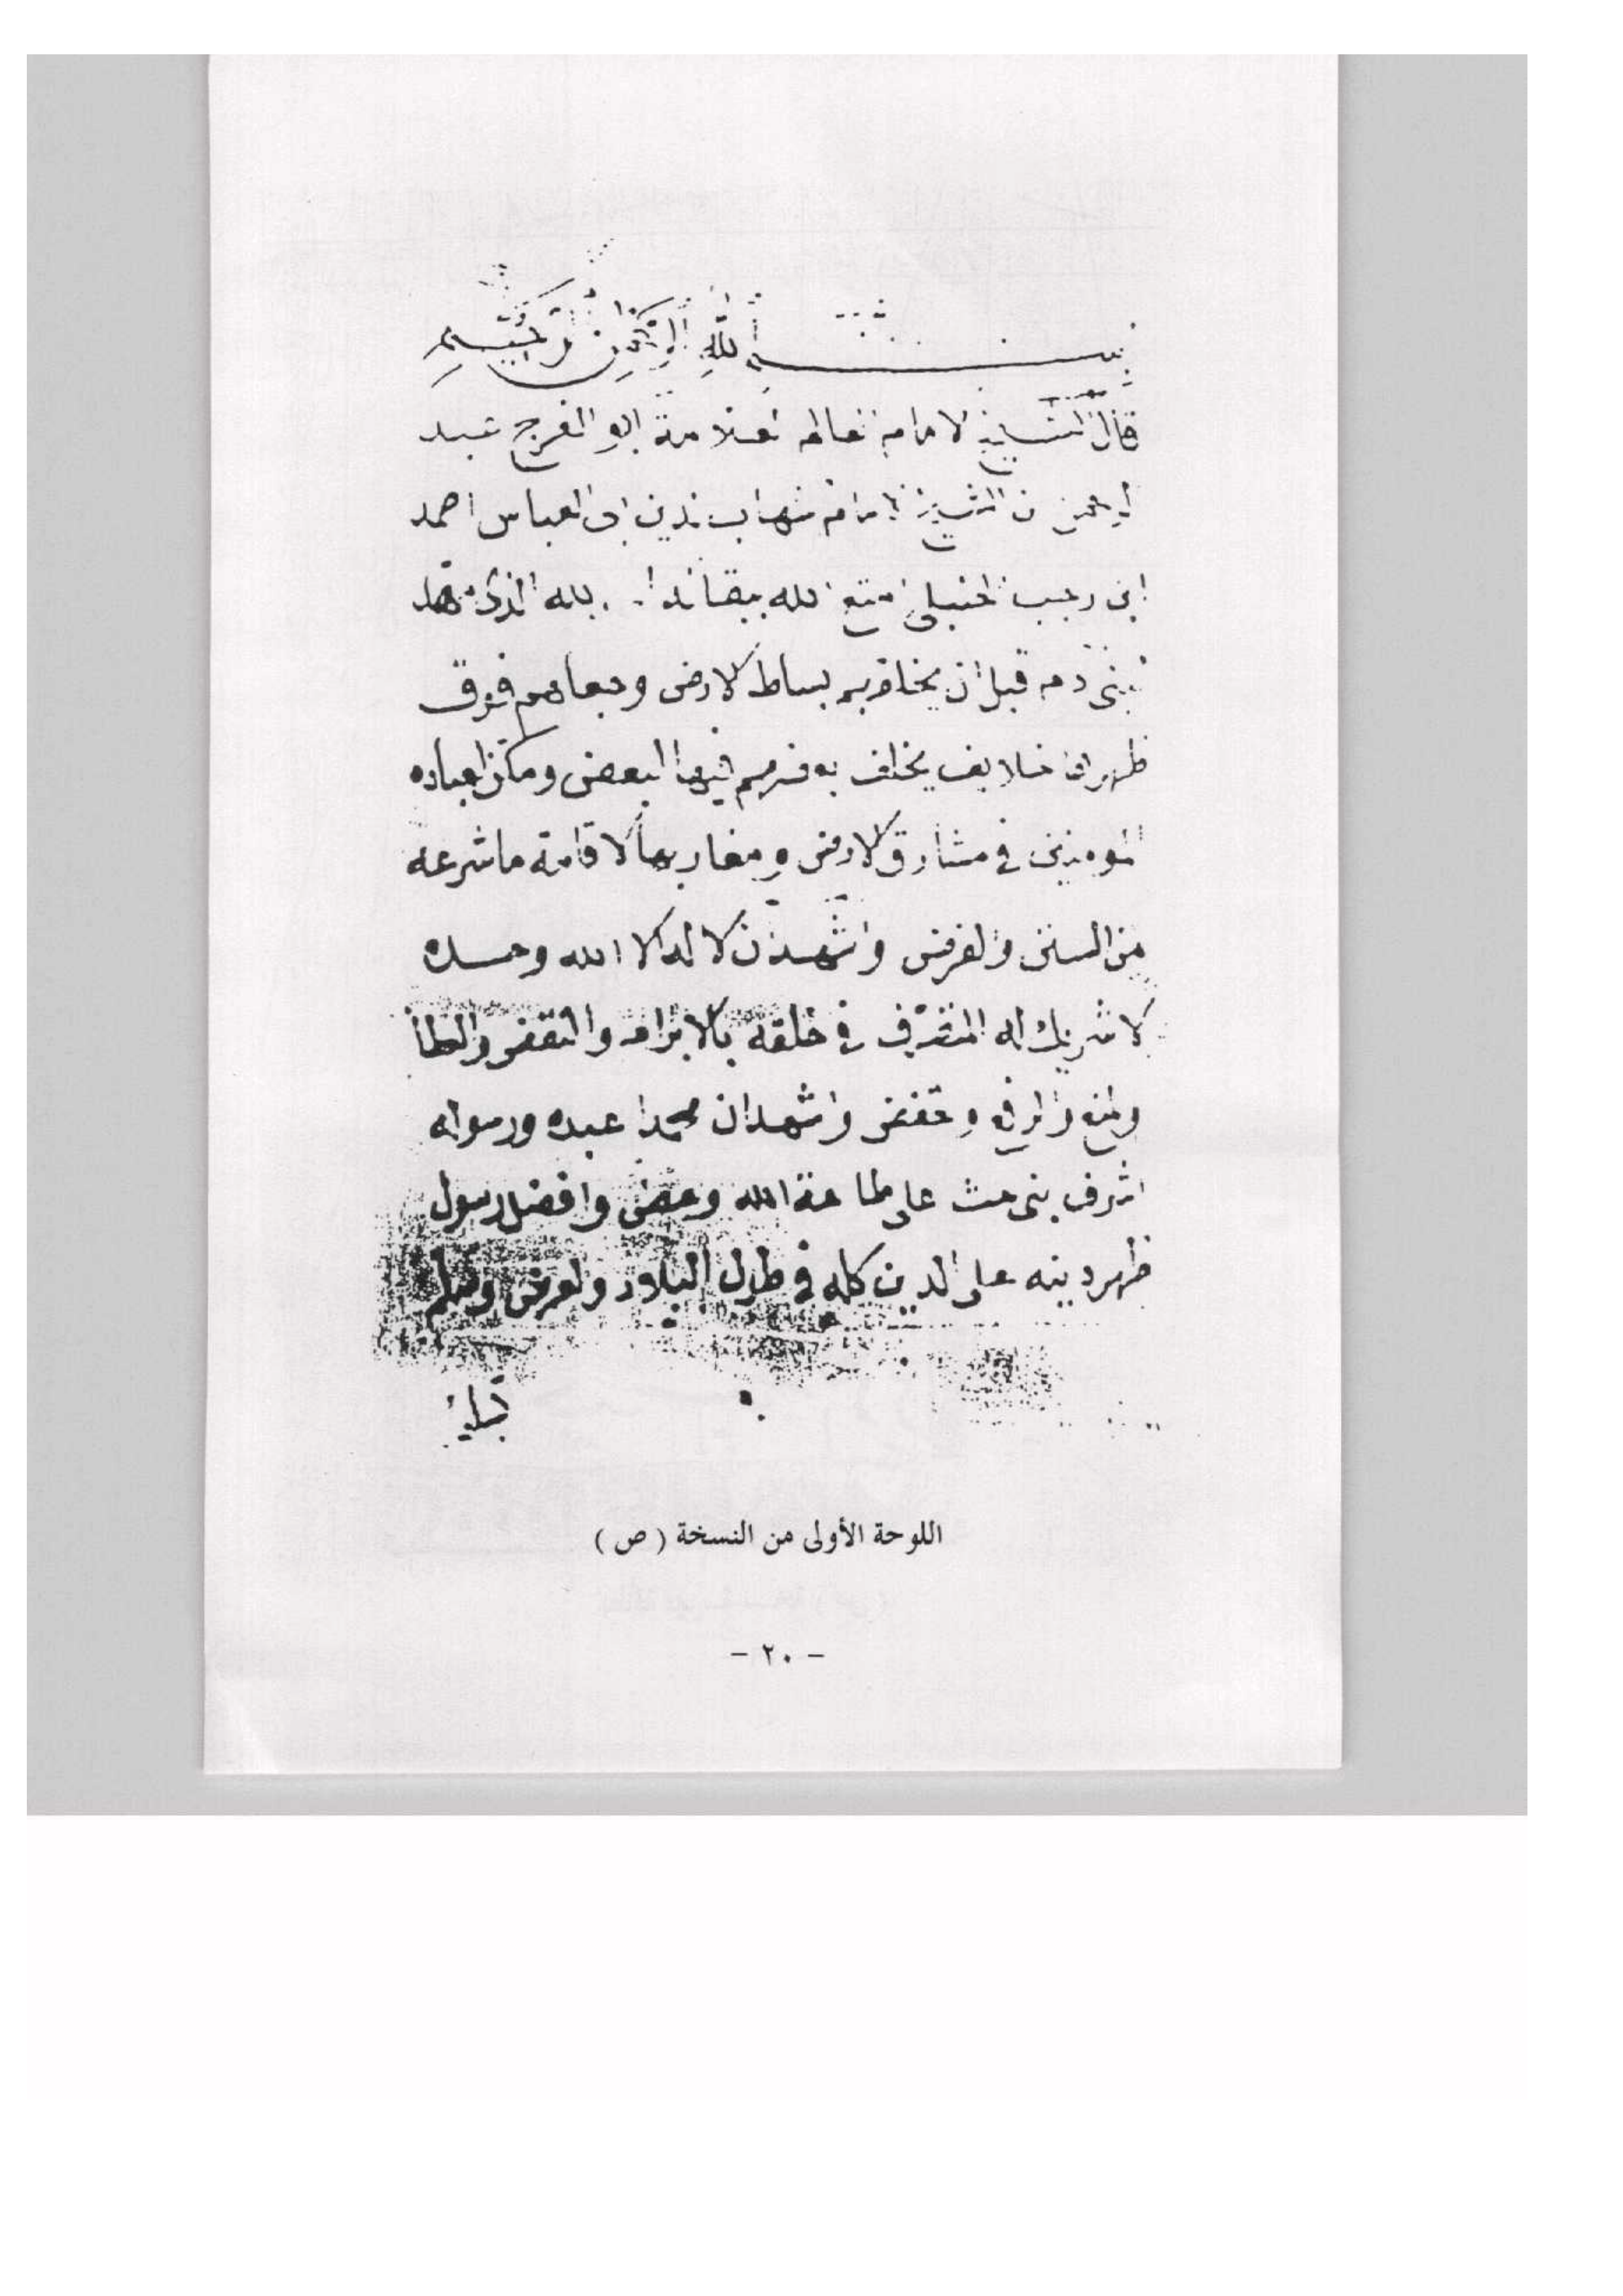 بسم الله الرحمن الرحيم
قال الشيخ الامام العالم العلامة ابو الفرج عبد
الرحمن بن الشيخ الامام شهاب الدين ابى العباس احمد
ابن رجب الحنبلى امتع الله ببقائه الحمد لله الذى مهد
لبنى ادم قبل ان يخلقهم بساط الارض وجعلهم فوق
ظهرها خلايف يخلف بعضهم فيها البعض ومكن لعباده
المومنين في مشارق الارض ومغاربها لاقامة ما شرعه
من السنن والفرض واشهد ان لا اله الا الله وحده
لا شريك له المتصرف في خلقه بالابرام والنقض والعطا
والمنع والرفع والخفض واشهد ان محمدا عبده ورسوله
اشرف نبى حث على طاعة الله وحض وافضل رسول
ظهر دينه على الدين كله في طول البلاد والعرض وسلم
اللوحة الأولى من النسخة ( ص )
- ٢٠ -